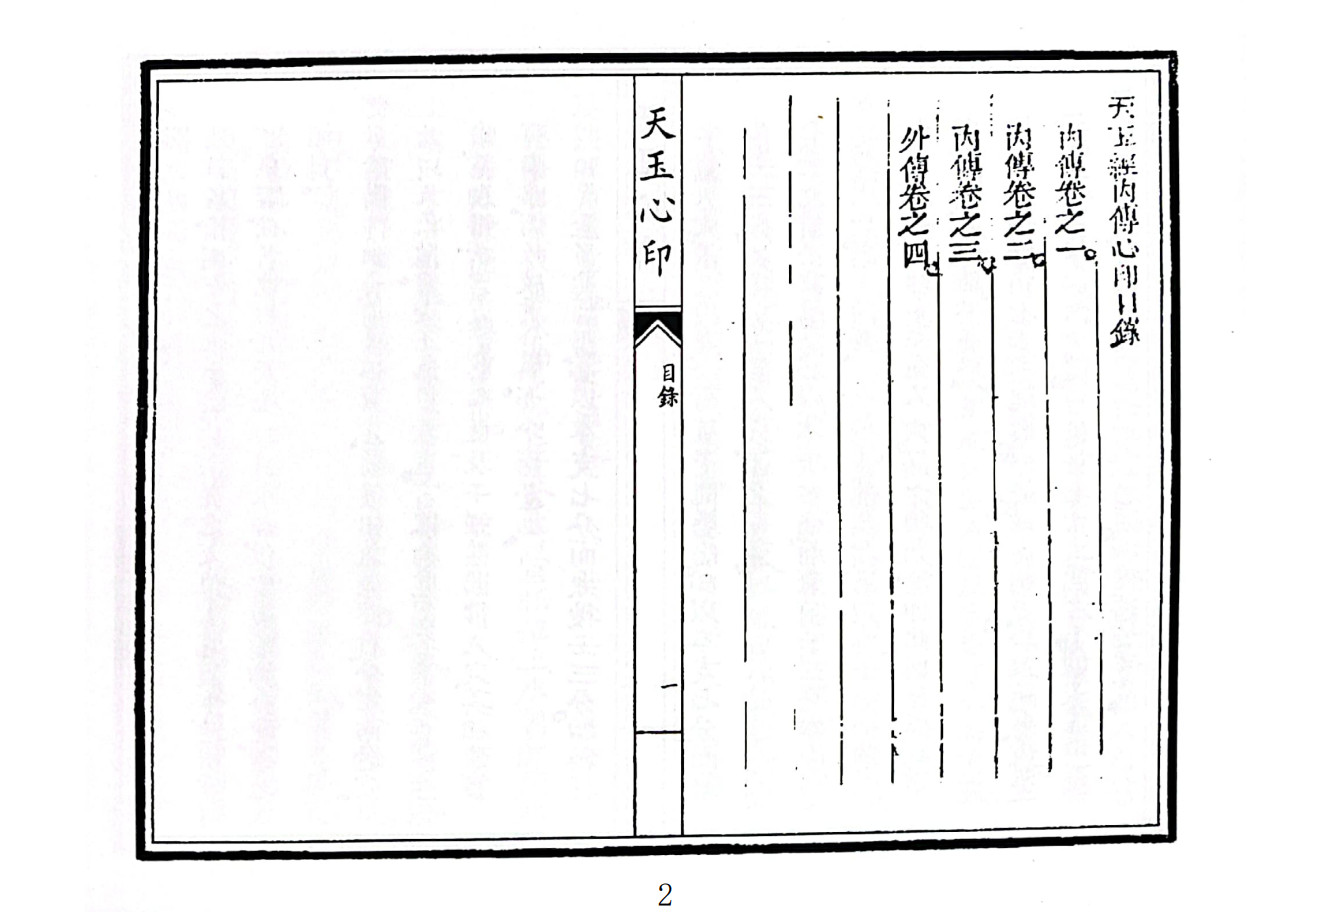 天玉經內傳心印目錄
內傳卷之一
內傳卷之二
內傳卷之三
外傳卷之四
天玉心印
目錄
一
2